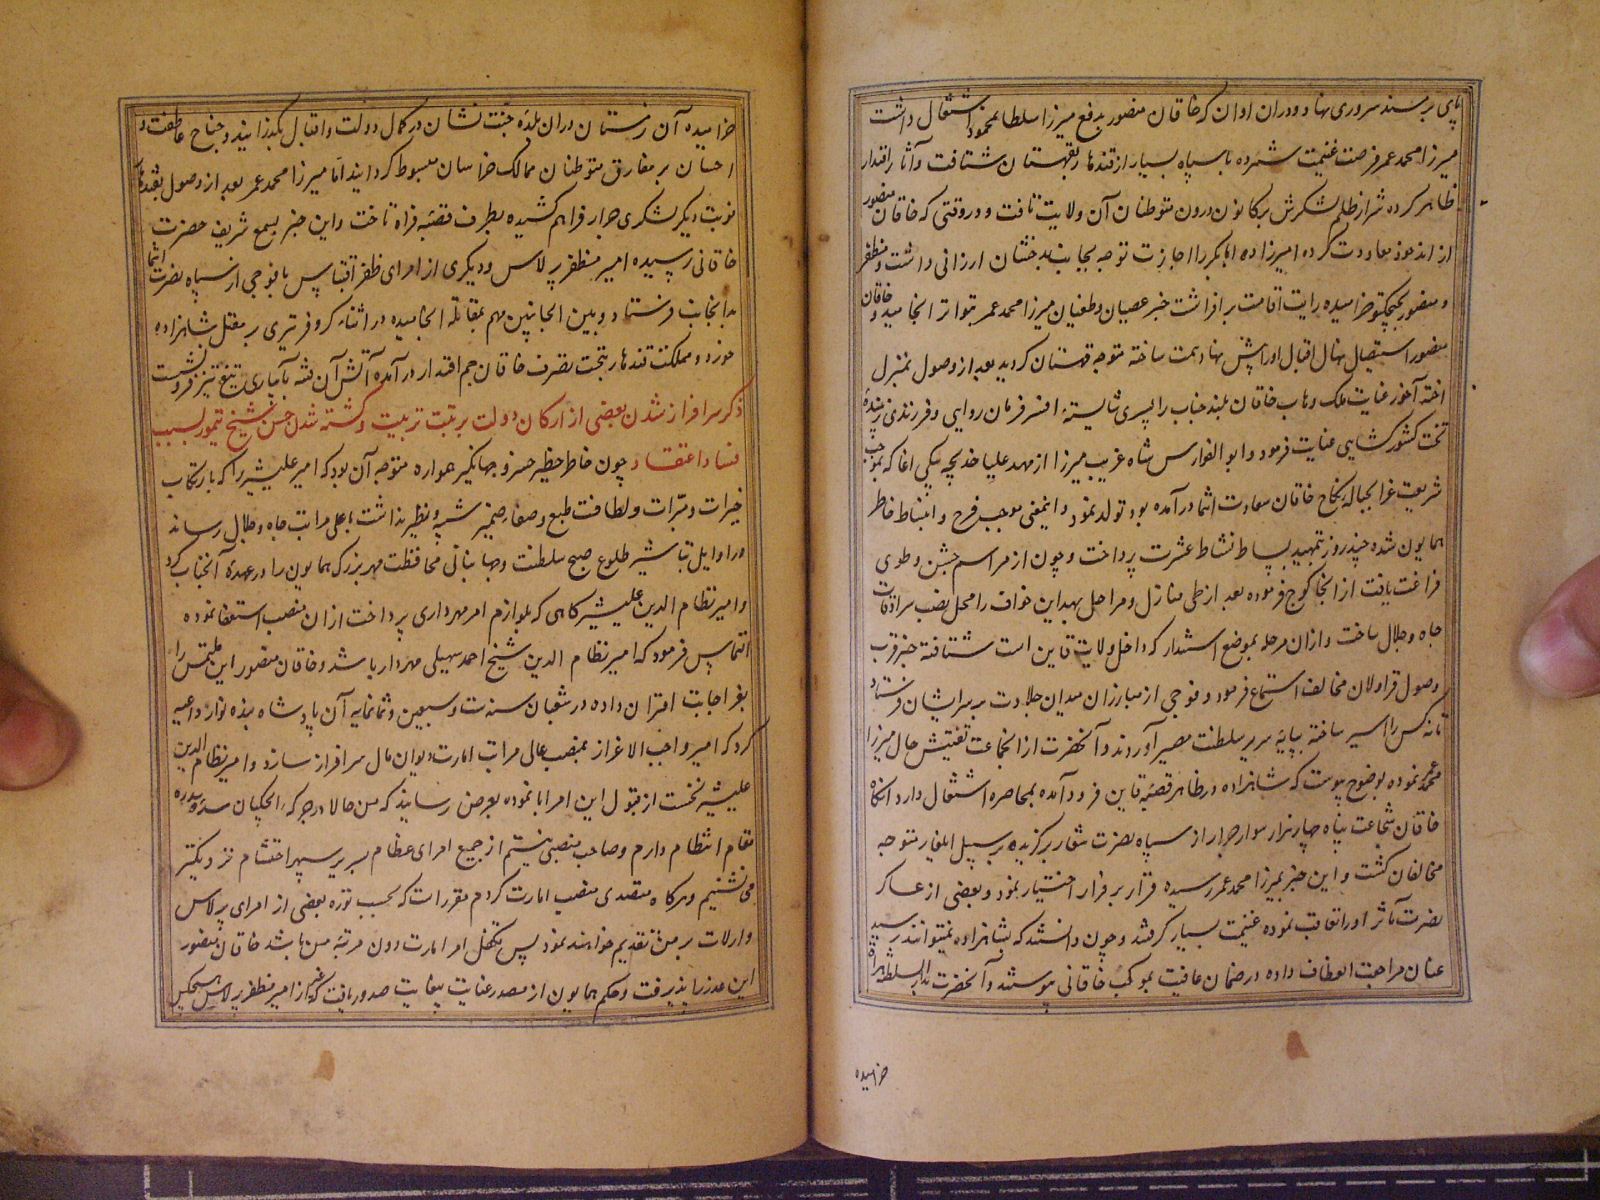 پای بر مسند سروری نهاد و دران اوان که خاقان منصور بدفع میرزا سلطان محمود اشتغال داشت
میرزا محمد عمر فرصت غنیمت شمرده با سپاه بسیار از قندهار بقهستان شتافت و آثار اقتدار
ظاهر کرده شرار ظلم لشکرش بکانون درون متوطنان آن ولایت تافت و در وقتی که خاقان منصور
از اندخود معاودت کرده امیرزاده ابابکر را اجازت توجه بجانب بدخشان ارزانی داشت و مظفر
و منصور بچیچکتو خرامیده رایت اقامت برافراشت خبر عصیان و طغیان میرزا محمد عمر بتواتر انجامید و خاقان
منصور استیصال نهال اقبال او را پیش نهاد همت ساخته متوجه قهستان کردید بعد از وصول بمنزل
اخته آخور عنایت ملک وهاب خاقان بلند جناب را پسری شایستهٔ افسر فرمان روایی و فرزندی زیبندهٔ
تخت کشور کشایی عنایت فرمود و ابو الفوارس شاه غریب میرزا از مهد علیا خدیجه بیکی اغا که بموجب
شریعت غرا بحباله نکاح خاقان سعادت انتما درآمده بود تولد نمود و اینمعنی موجب فرح و انبساط خاطر
همایون شده چند روز بتمهید بساط نشاط عشرت پرداخت و چون از مراسم جشن و طوی
فراغت یافت از انجا کوچ فرموده بعد از طی منازل و مراحل بهدایین خواف را محل نصب سرادقات
جاه و جلال ساخت و ازان مرحله بموضع استندار که داخل ولایت قاین است شتافته خبر قرب
وصول قراولان مخالف استماع فرمود و فوجی از مبارزان میدان جلادت بر سر ایشان فرستاد
تا نه کس را اسیر ساخته بپایهٔ سریر سلطنت مصیر آوردند و آنحضرت ازانجماعت تفتیش حال میرزا
محمد عمر نموده بوضوح پیوست که شاهزاده در ظاهر قصبهٔ قاین فرود آمده بمحاصره اشتغال دارد انکاه
خاقان شجاعت پناه چهار هزار سوار جرار از سپاه نصرت شعار برکزیده بر سبیل ایلغار متوجه
مخالفان کشت و این خبر بمیرزا محمد عمر رسیده فرار بر قرار اختیار نمود و بعضی از عساکر
نصرت مآثر او را تعاقب نموده غنیمت بسیار کرفتند و چون دانستند که بشاهزاده نمیتوانند رسید
عنان مراجعت انعطاف داده در ضمان عافیت بموکب خاقانی پیوستند و آنحضرت بدار السلطنه هراة
خرامیده
خرامیده آن زمستان دران بلدهٔ جنت نشان در کمال دولت و اقبال بکذرانید و جناح عاطفت و
احسان بر مفارق متوطنان ممالک خراسان مبسوط کردانید اما میرزا محمد عمر بعد از وصول بقندهار
نوبت دیکر لشکری جرار فراهم کشیده بطرف قصبهٔ فراه تاخت و این خبر بسمع شریف حضرت
خاقانی رسیده امیر مظفر برلاس و دیکری از امرای ظفر اقتباس با فوجی از سپاه نصرت انتما
بدانجانب فرستاد و بین الجانبین مهم بمقاتله انجامیده در اثناء کر و فر تیری بر مقتل شاهزاده
خورد و مملکت قندهار بتحت تصرف خاقان جم اقتدار درآمده آتش آن فتنه بآبیاری تیغ تیز فرو نشست
ذکر سرافراز شدن بعضی از ارکان دولت برتبت تربیت و کشته شدن حسن شیخ تیمور بسبب
فساد اعتقاد چون خاطر خطیر خسرو جهانکیر همواره متوجه آن بود که امیر علیشیر را که بارتکاب
خیرات و مبرات و لطافت طبع و صفاء ضمیر شبیه و نظیر نداشت باعلی مراتب جاه و جلال رساند
در اوایل تباشیر طلوع صبح سلطنت و جهانبانی محافظت مهر بزرک همایون را در عهدهٔ آنجناب کرد
و امیر نظام الدین علیشیر کاهی که بلوازم امر مهرداری پرداخت ازان منصب استعفا نموده
التماس فرمود که امیر نظام الدین شیخ احمد سهیلی مهردار باشد و خاقان منصور این ملتمس را
بعز اجابت اقتران داده در شعبان سنه ست و سبعین و ثمانمایه آن پادشاه بنده نواز داعیه
کرد که امیر واجب الاعزاز بمنصب عالی مراتب امارت دیوان مال سرافراز سازد و امیر نظام الدین
علیشیر نخست از قبول این امر ابا نموده بعرض رسانید که من حالا در جرکه ایچکیان سدهٔ سدره
مقام انتظام دارم و صاحب منصبی نیستم از جمیع امرای عظام بسریر سپهر احتشام نزدیکتر
می نشینم و هرکاه متصدی منصب امارت کردم مقررست که بحسب توره بعضی از امرای برلاس
و ارلات بر من تقدیم خواهند نمود پس تکفل امر امارت دون مرتبهٔ من باشد خاقان منصور
این عذر را نپذیرفت و حکم همایون از مصدر عنایت بیغایت صدور یافت که غیر از امیر مظفر برلاس هیچکس